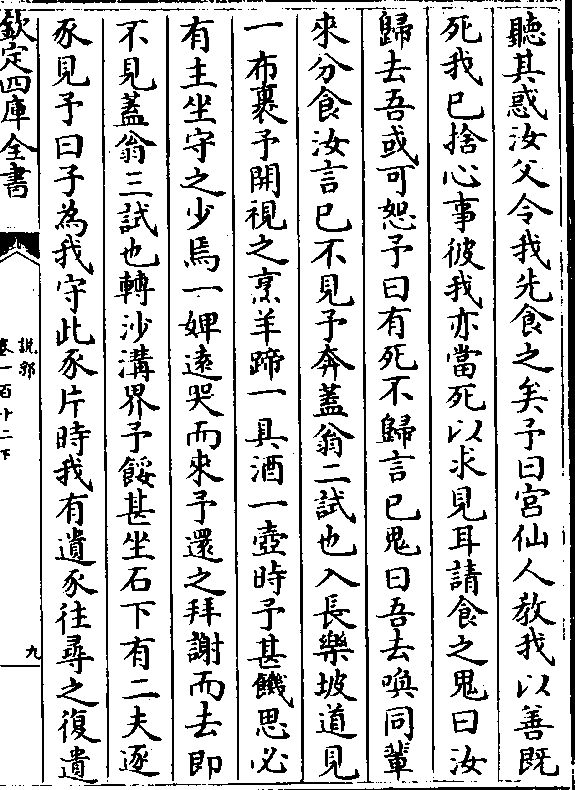 聽其惑汝父令我先食之矣予曰宫仙人教我以善既
死我已捨心事彼我亦當死以求見耳請食之鬼曰汝
歸去吾或可恕予曰有死不歸言已鬼曰吾去喚同輩
來分食汝言已不見予奔蓋翁二試也入長樂坡道見
一布裹予開視之烹羊蹄一具酒一壺時予甚饑思必
有主坐守之少焉一婢遠哭而來予還之拜謝而去即
不見蓋翁三試也轉沙溝界予餒甚坐石下有二夫逐
豕見予曰子為我守此豕片時我有遺豕往尋之復遺
欽定四庫全書
說郛
卷一百十二下
九